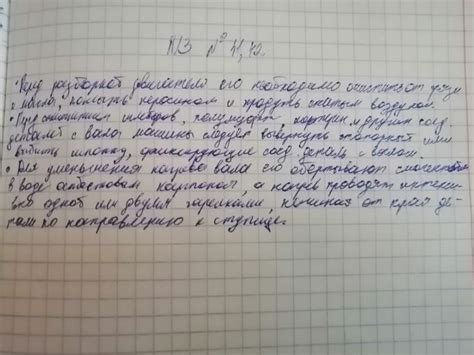 ПЗ № 41, 42
• Перед разборкой двигателя его необходимо очистить от грязи
и масла, помыть керосином и продуть сжатым воздухом.
• При снятии шкивов, полумуфт, и других соед.
деталей с вала машины следует вывернуть стопорный или
выбить шпонку, фиксирующие соед. деталь с валом.
• Для уменьшения нагрева вала его обертывают смоченным
в воде асбестовым картоном, а нагрев проводят интенси
вно одной или двумя горелками, начиная от края де-
тали по направлению к ступице.